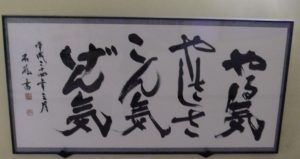 やる気
やさしさ
こん気
げん気
平成二十四年三月